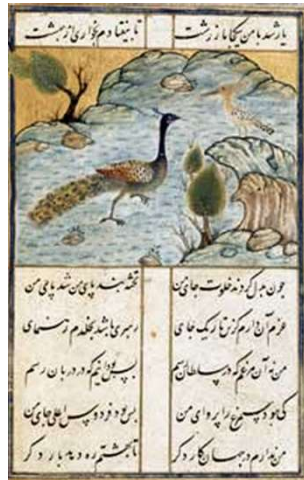 یار شد با من بیکجا مار زشت تا بیفتادم بخواری از بهشت
چون بدل کردند خلوت جای من تخته بند پای من شد پای من
عزم آن دارم کزین تاریک جای رهبری باشد بخلدم رهنمای
من نه آن مرغم که در سلطان رسم بس بود اینم که در دربان رسم
کی بود سیمرغ را پروای من بس بود فردوس اعلی جای من
من ندارم در جهان کار دگر تا بهشتم ره دهد بار دگر